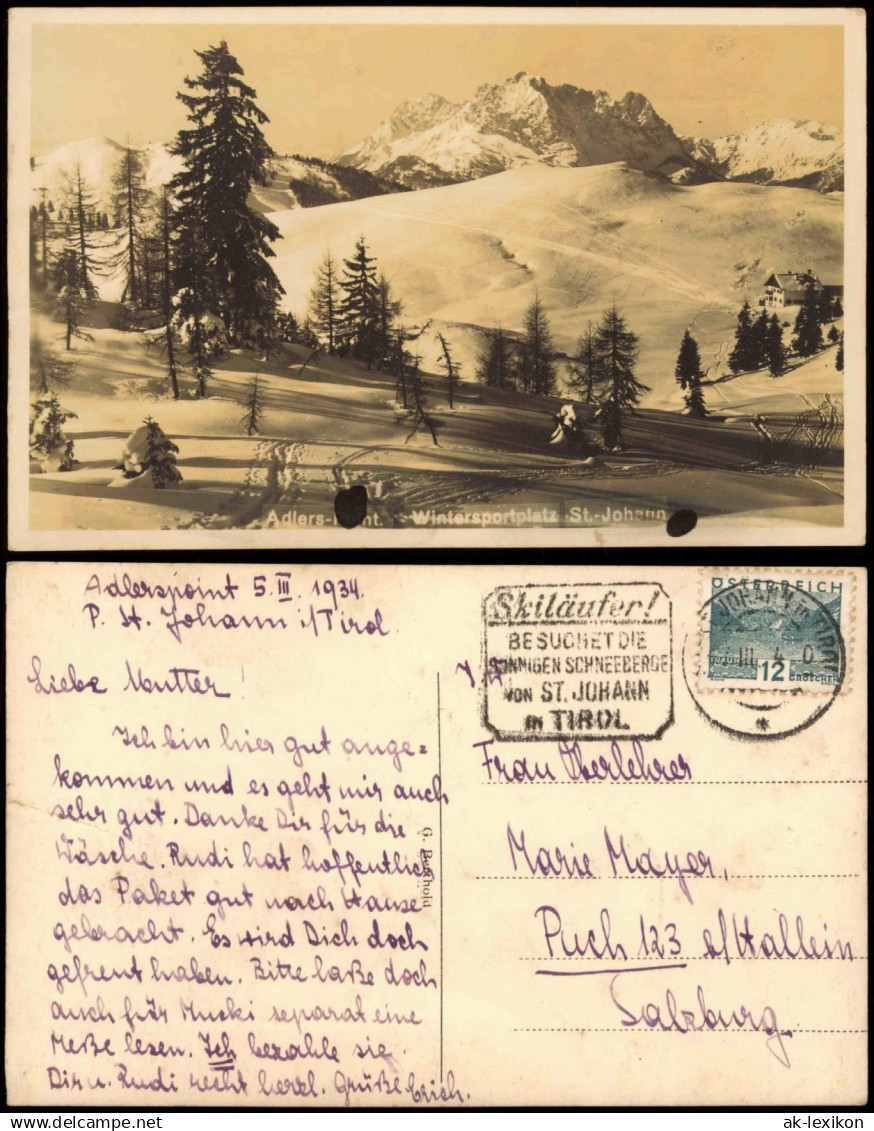 Adlers- nt. Wintersportplatz St.-Johann
Adlerspoint 5. III. 1934.
P. St. Johann i/Tirol
Liebe Mutter!
Ich bin hier gut ange=
kommen und es geht mir auch
sehr gut. Danke Dir für die
Wäsche. Rudi hat hoffentlich
das Paket gut nach Hause
gebracht. Es wird Dich doch
gefreut haben. Bitte laße doch
auch für Mucki separat eine
Meße lesen. Ich bezahle sie.
Dir u. Rudi recht herzl. Grüße Erich.
G. Berthold
Skiläufer!
BESUCHET DIE
SONNIGEN SCHNEEBERGE
VON ST. JOHANN
IN TIROL
ÖSTERREICH
12
GROSCHEN
JOHANN in TIROL
III 4 0
Frau Oberlehrer
Marie Mayer,
Puch 123 b/Hallein
Salzburg
ak-lexikon.com